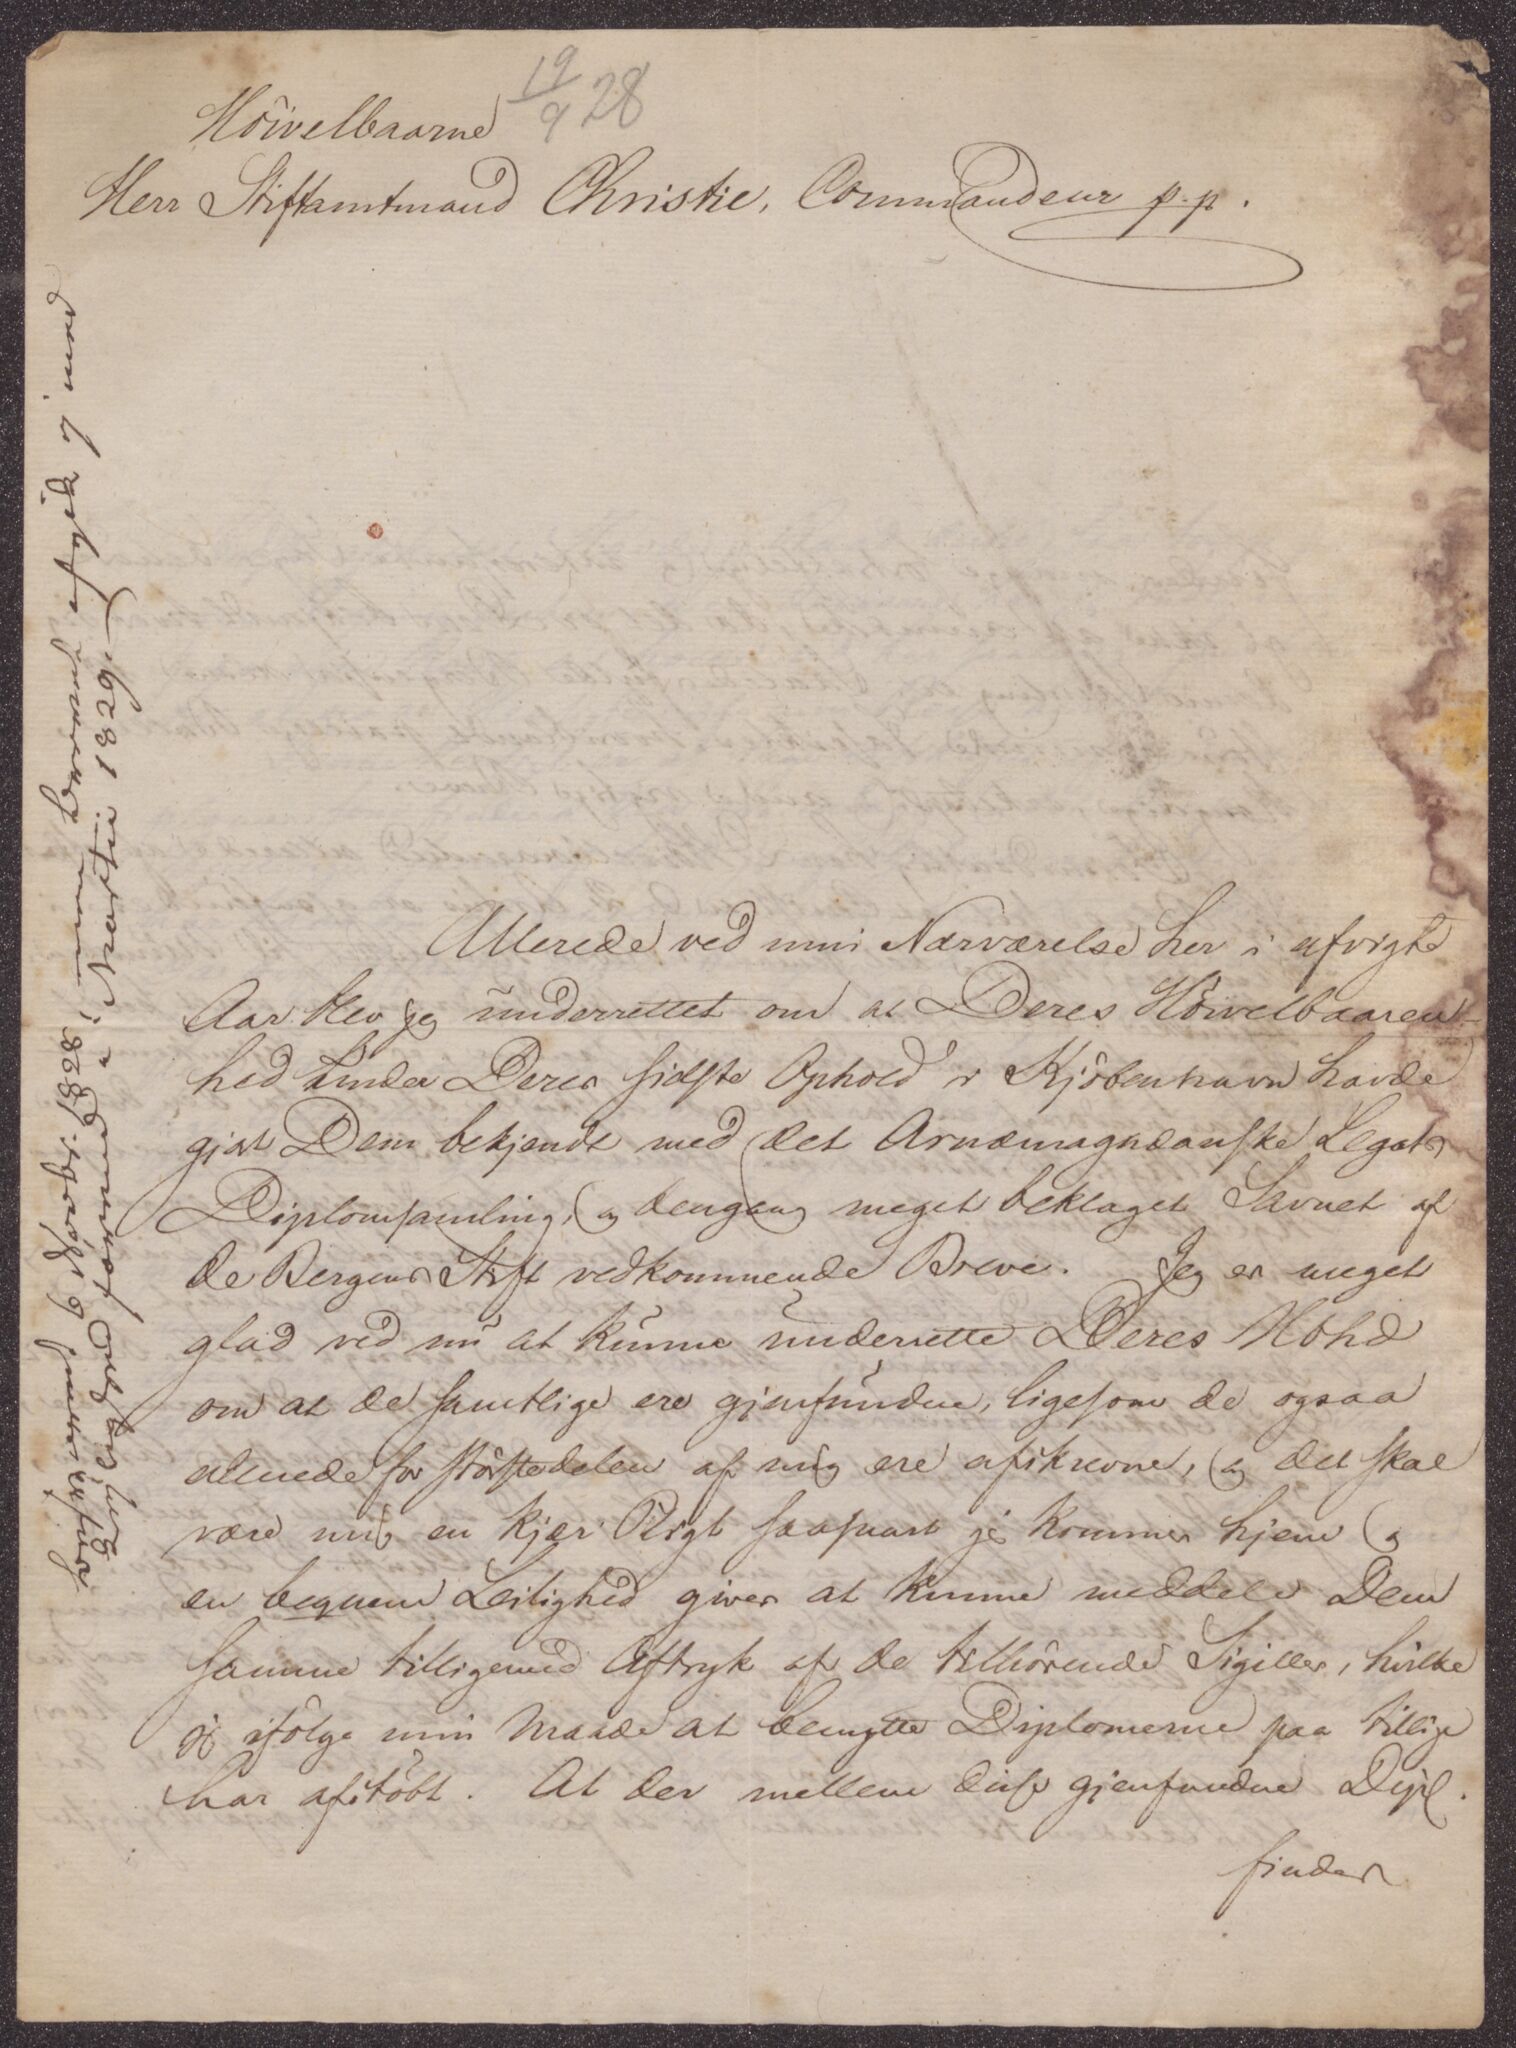 19/9 28
Höivelbaarne
Herr Stiftamtmand Christie, Commandeur p.p.
Allerede ved min Nærværelse her i afvigte
Aar blev jeg underrettet om at Deres Höivelbaaren-
hed under Deres sidste Ophold i Kjöbenhavn havde
gjort Dem bekjendt med det Arnæmagnæanske Legats
Diplomsamling, og dengang meget beklaget Savnet af
de Bergens Stift vedkommende Breve. Jeg er meget
glad ved nu at kunne underrette Deres Höhd
om at de samtlige ere gjenfundne, ligesom de ogsaa
allerede for störstedelen af mig ere afskrevne, og det skal
være mig en kjær Pligt saasnart jeg kommer hjem og
en beqvem Leilighed gives at kunne meddele Dem
samme tilligemed Aftryk af de tilhörende Sigiller, hvilke
jeg ifölge min Maade at benytte Diplomerne paa tillige
har afstöbt. At der mellem disse gjenfundne Dipl.
findes